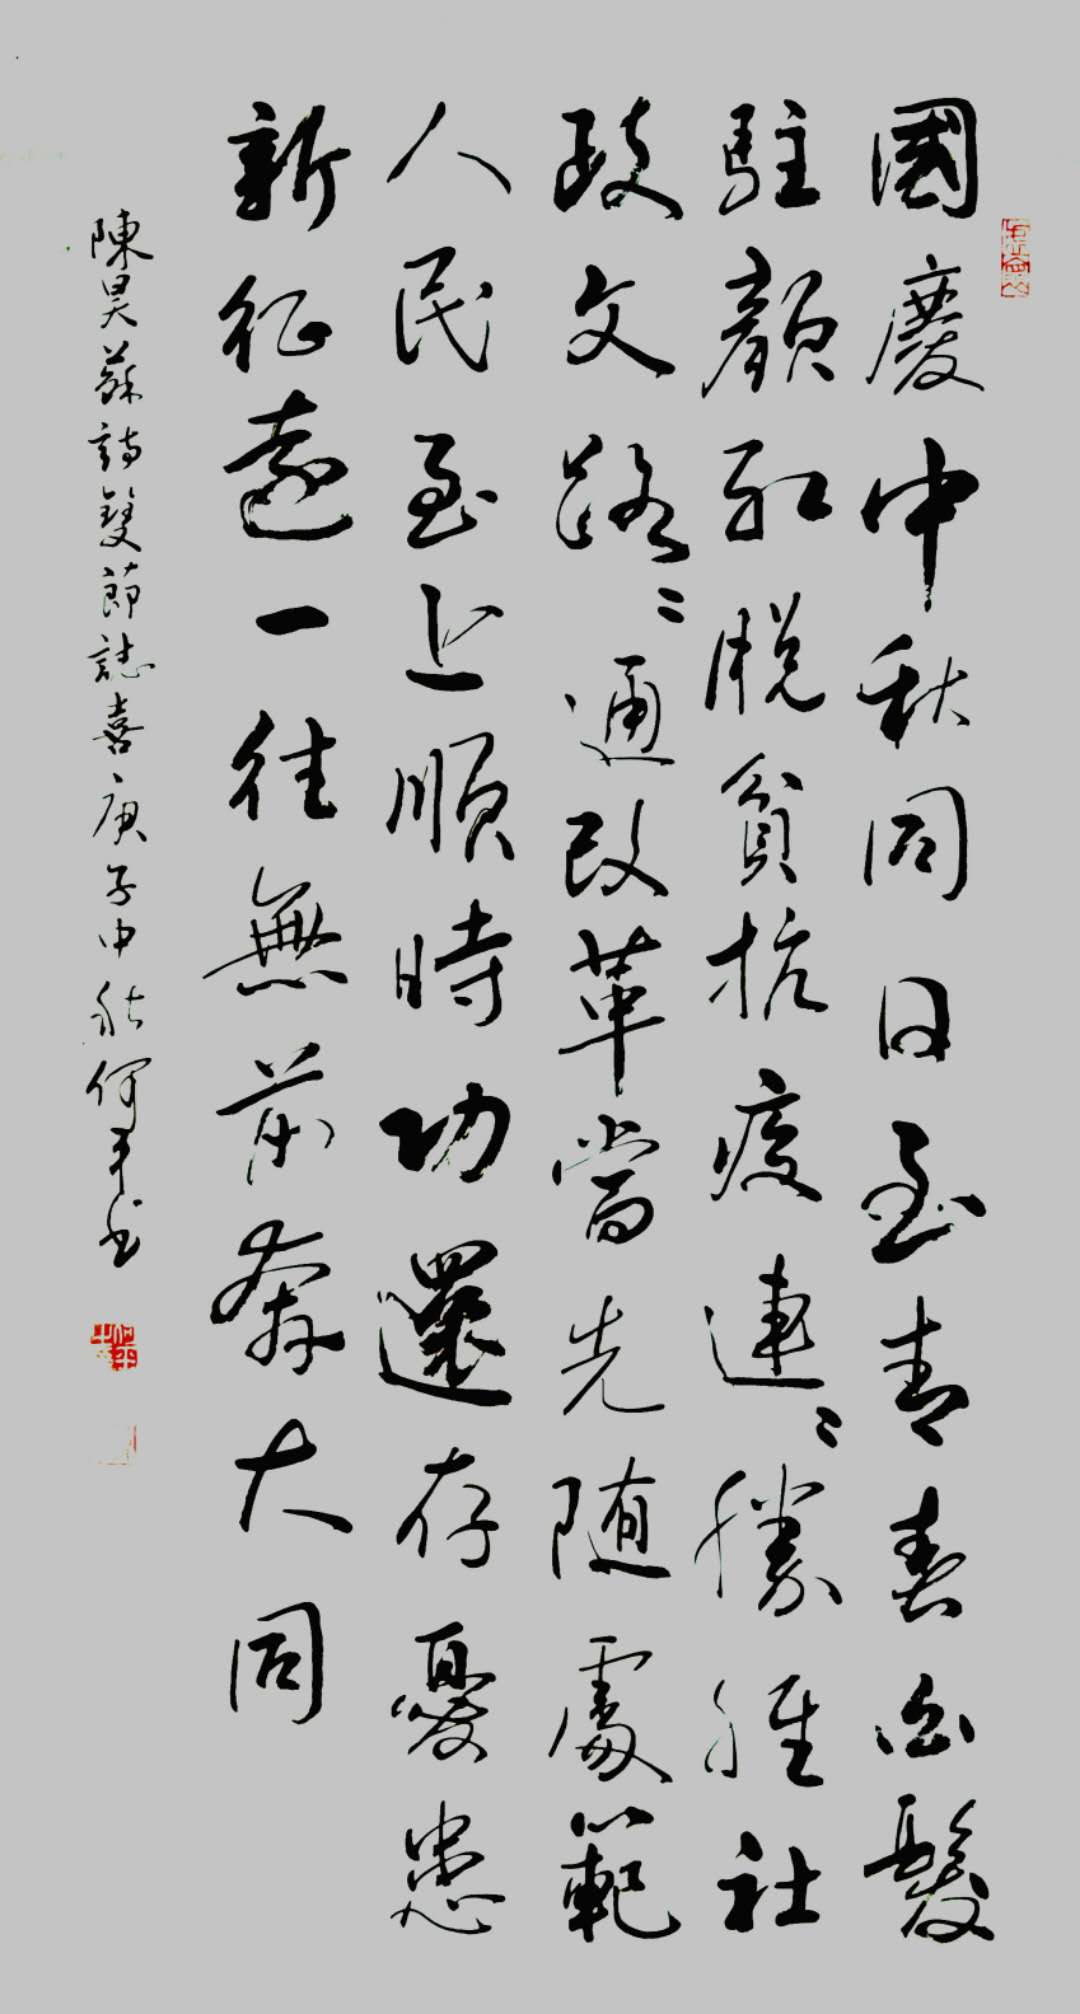 國慶中秋同日至青春白髮
駐顏紅脫貧抗疫連〻勝經社
政文路〻通改革當先隨處範
人民至上順時功還存憂患
新征遠一往無前奔大同
陳昊蘇詩雙節誌喜庚子中秋何平書